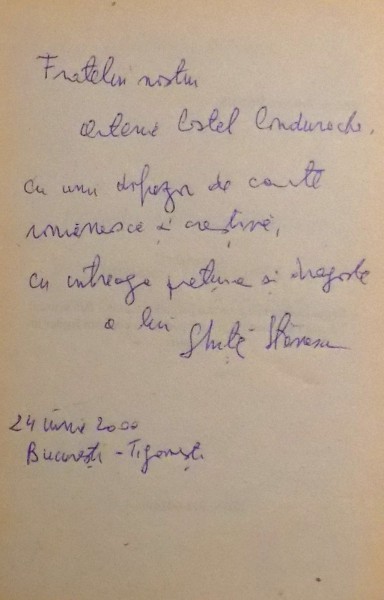 Fratelui nostru
Artenie Costel Condurache,
ca unui difuzor de carte
românească și creștină,
cu întreaga prețuire și dragoste
a lui Ghiță Stănescu
24 iunie 2000
București - Țigănești